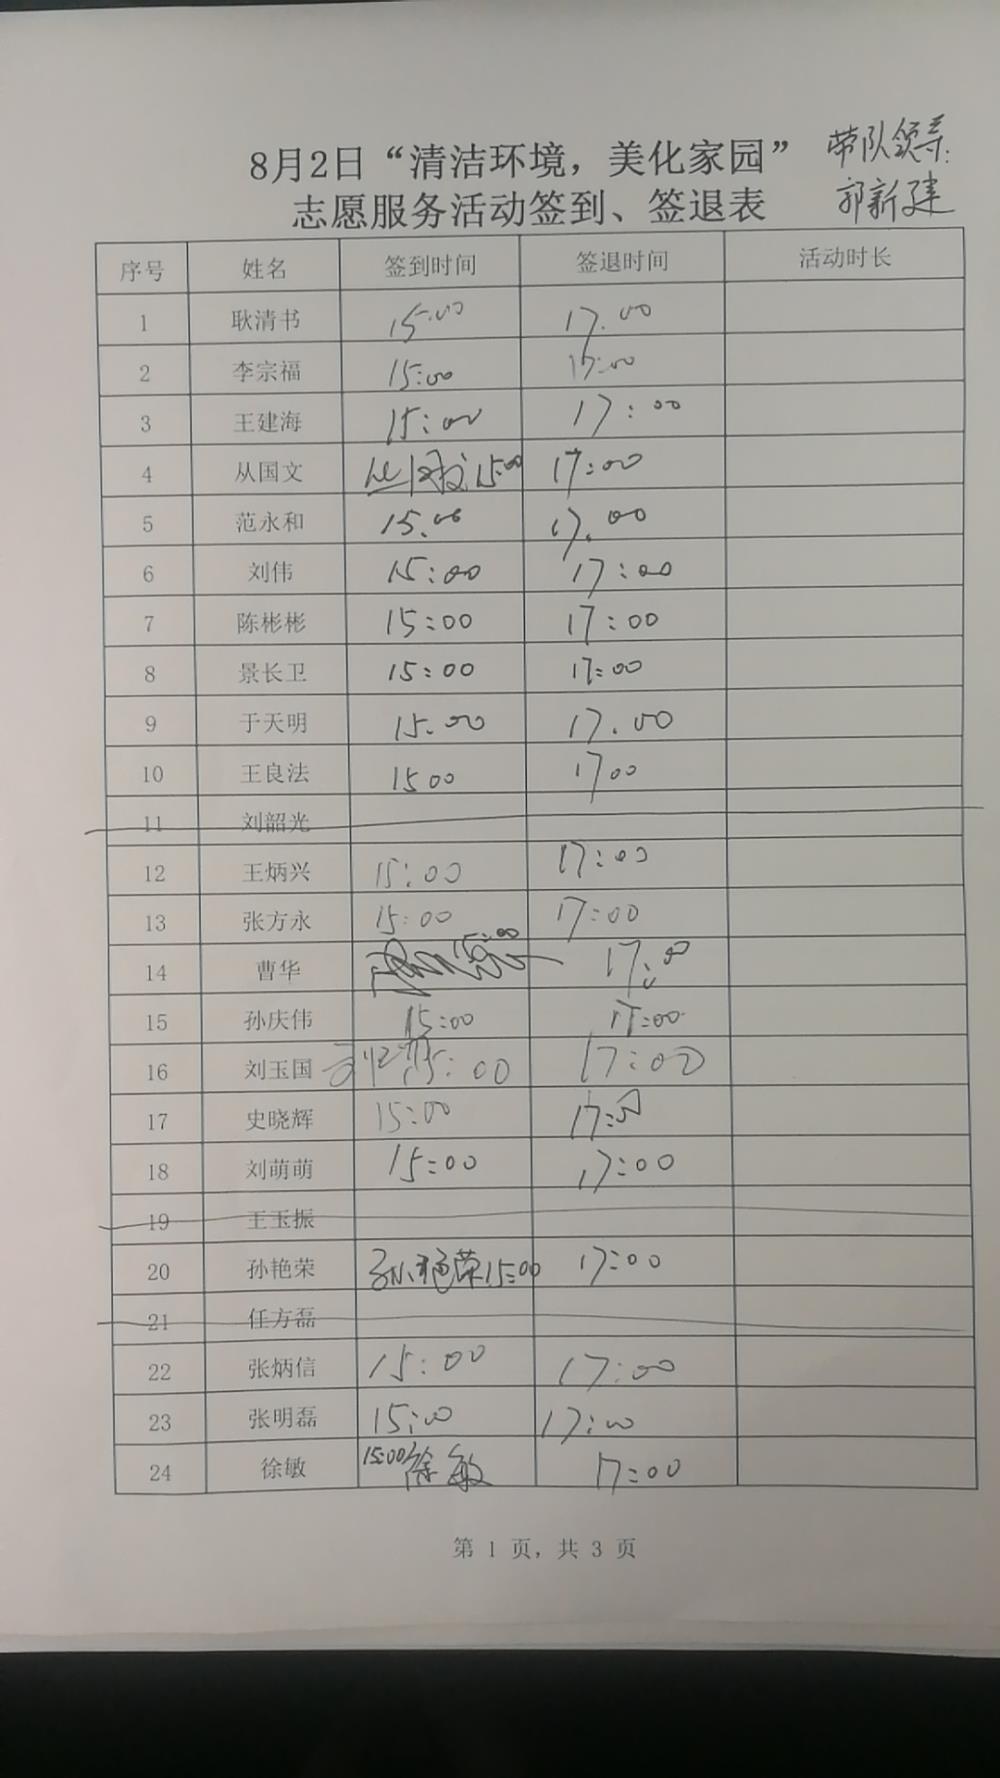 8月2日“清洁环境，美化家园” 带队领导:
志愿服务活动签到、签退表 郭新建
序号 姓名 签到时间 签退时间 活动时长
1 耿清书 15:00 17.00
2 李宗福 15:00 17:00
3 王建海 15:00 17:00
4 从国文 从国文 15:00 17:00
5 范永和 15.00 17.00
6 刘伟 15:00 17:00
7 陈彬彬 15:00 17:00
8 景长卫 15:00 17:00
9 于天明 15.00 17.00
10 王良法 1500 1700
11 刘韶光
12 王炳兴 15:00 17:00
13 张方永 15:00 17:00
14 曹华 15:00 17:00
15 孙庆伟 15:00 17:00
16 刘玉国 15:00 17:00
17 史晓辉 15:00 17:00
18 刘萌萌 15:00 17:00
19 王玉振
20 孙艳荣 孙艳荣 15:00 17:00
21 任方磊
22 张炳信 15:00 17:00
23 张明磊 15:00 17:00
24 徐敏 15:00 徐敏 17:00
第 1 页，共 3 页